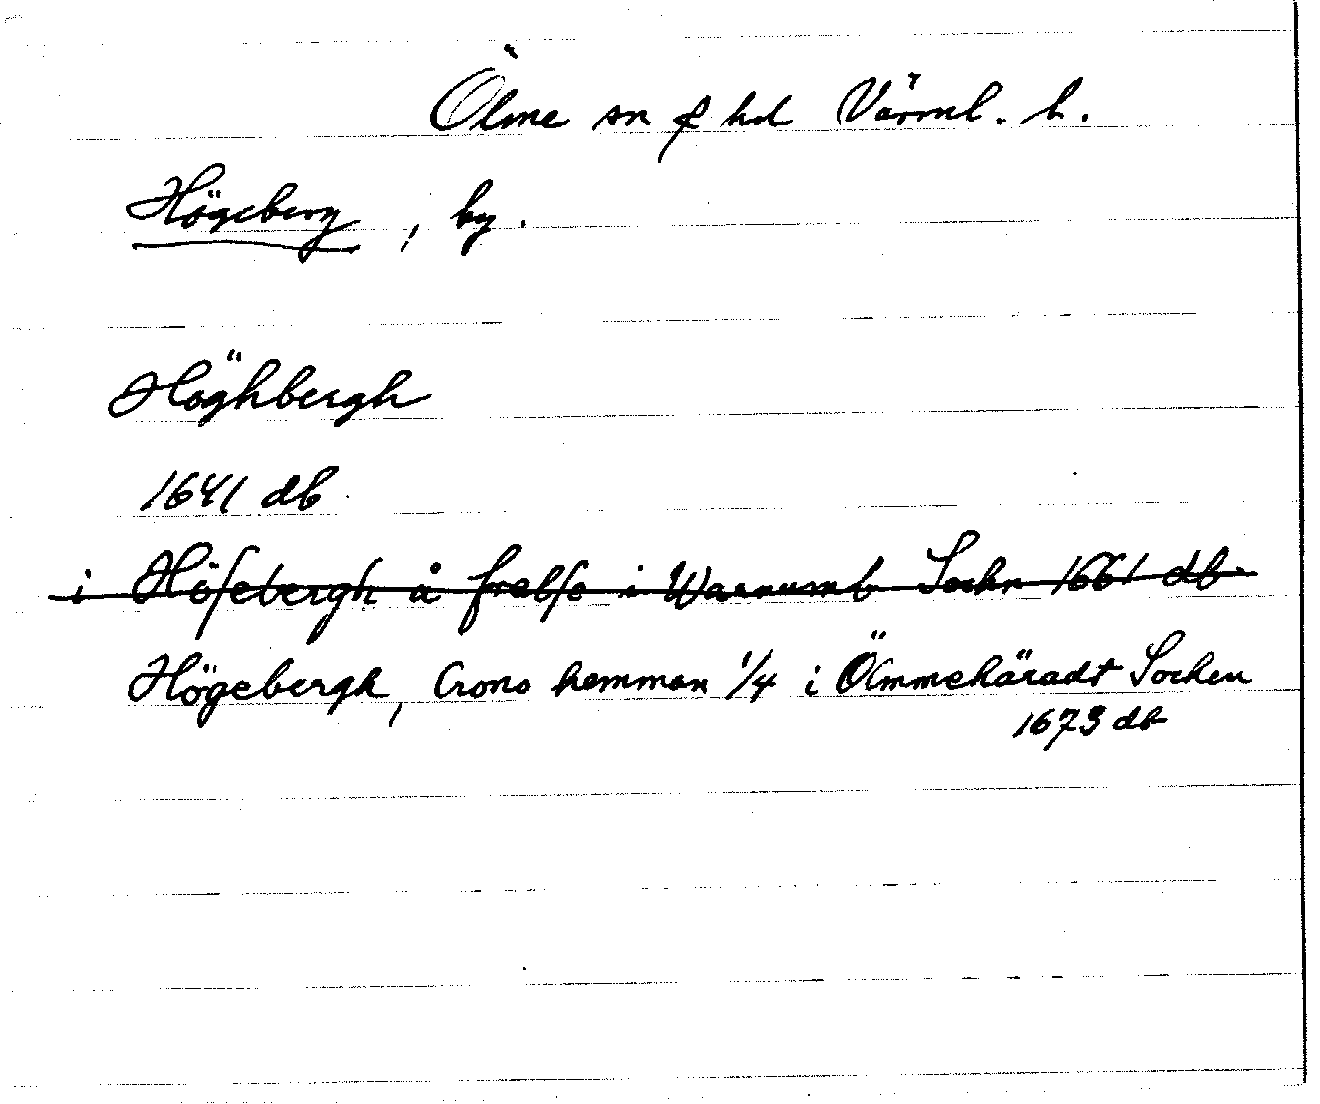 Ölme sn o hd Värml. l.
Högeberg, by.
Höghbergh
1641 db
i Höfebergh å frelse i Warnumb Sochn 1661 db
Högebergh, Crono hemman 1/4 i Ölmmehäradt Sochen
1673 db